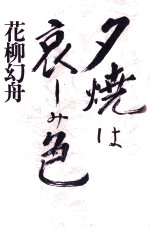 夕焼は
哀しみ色
花柳幻舟